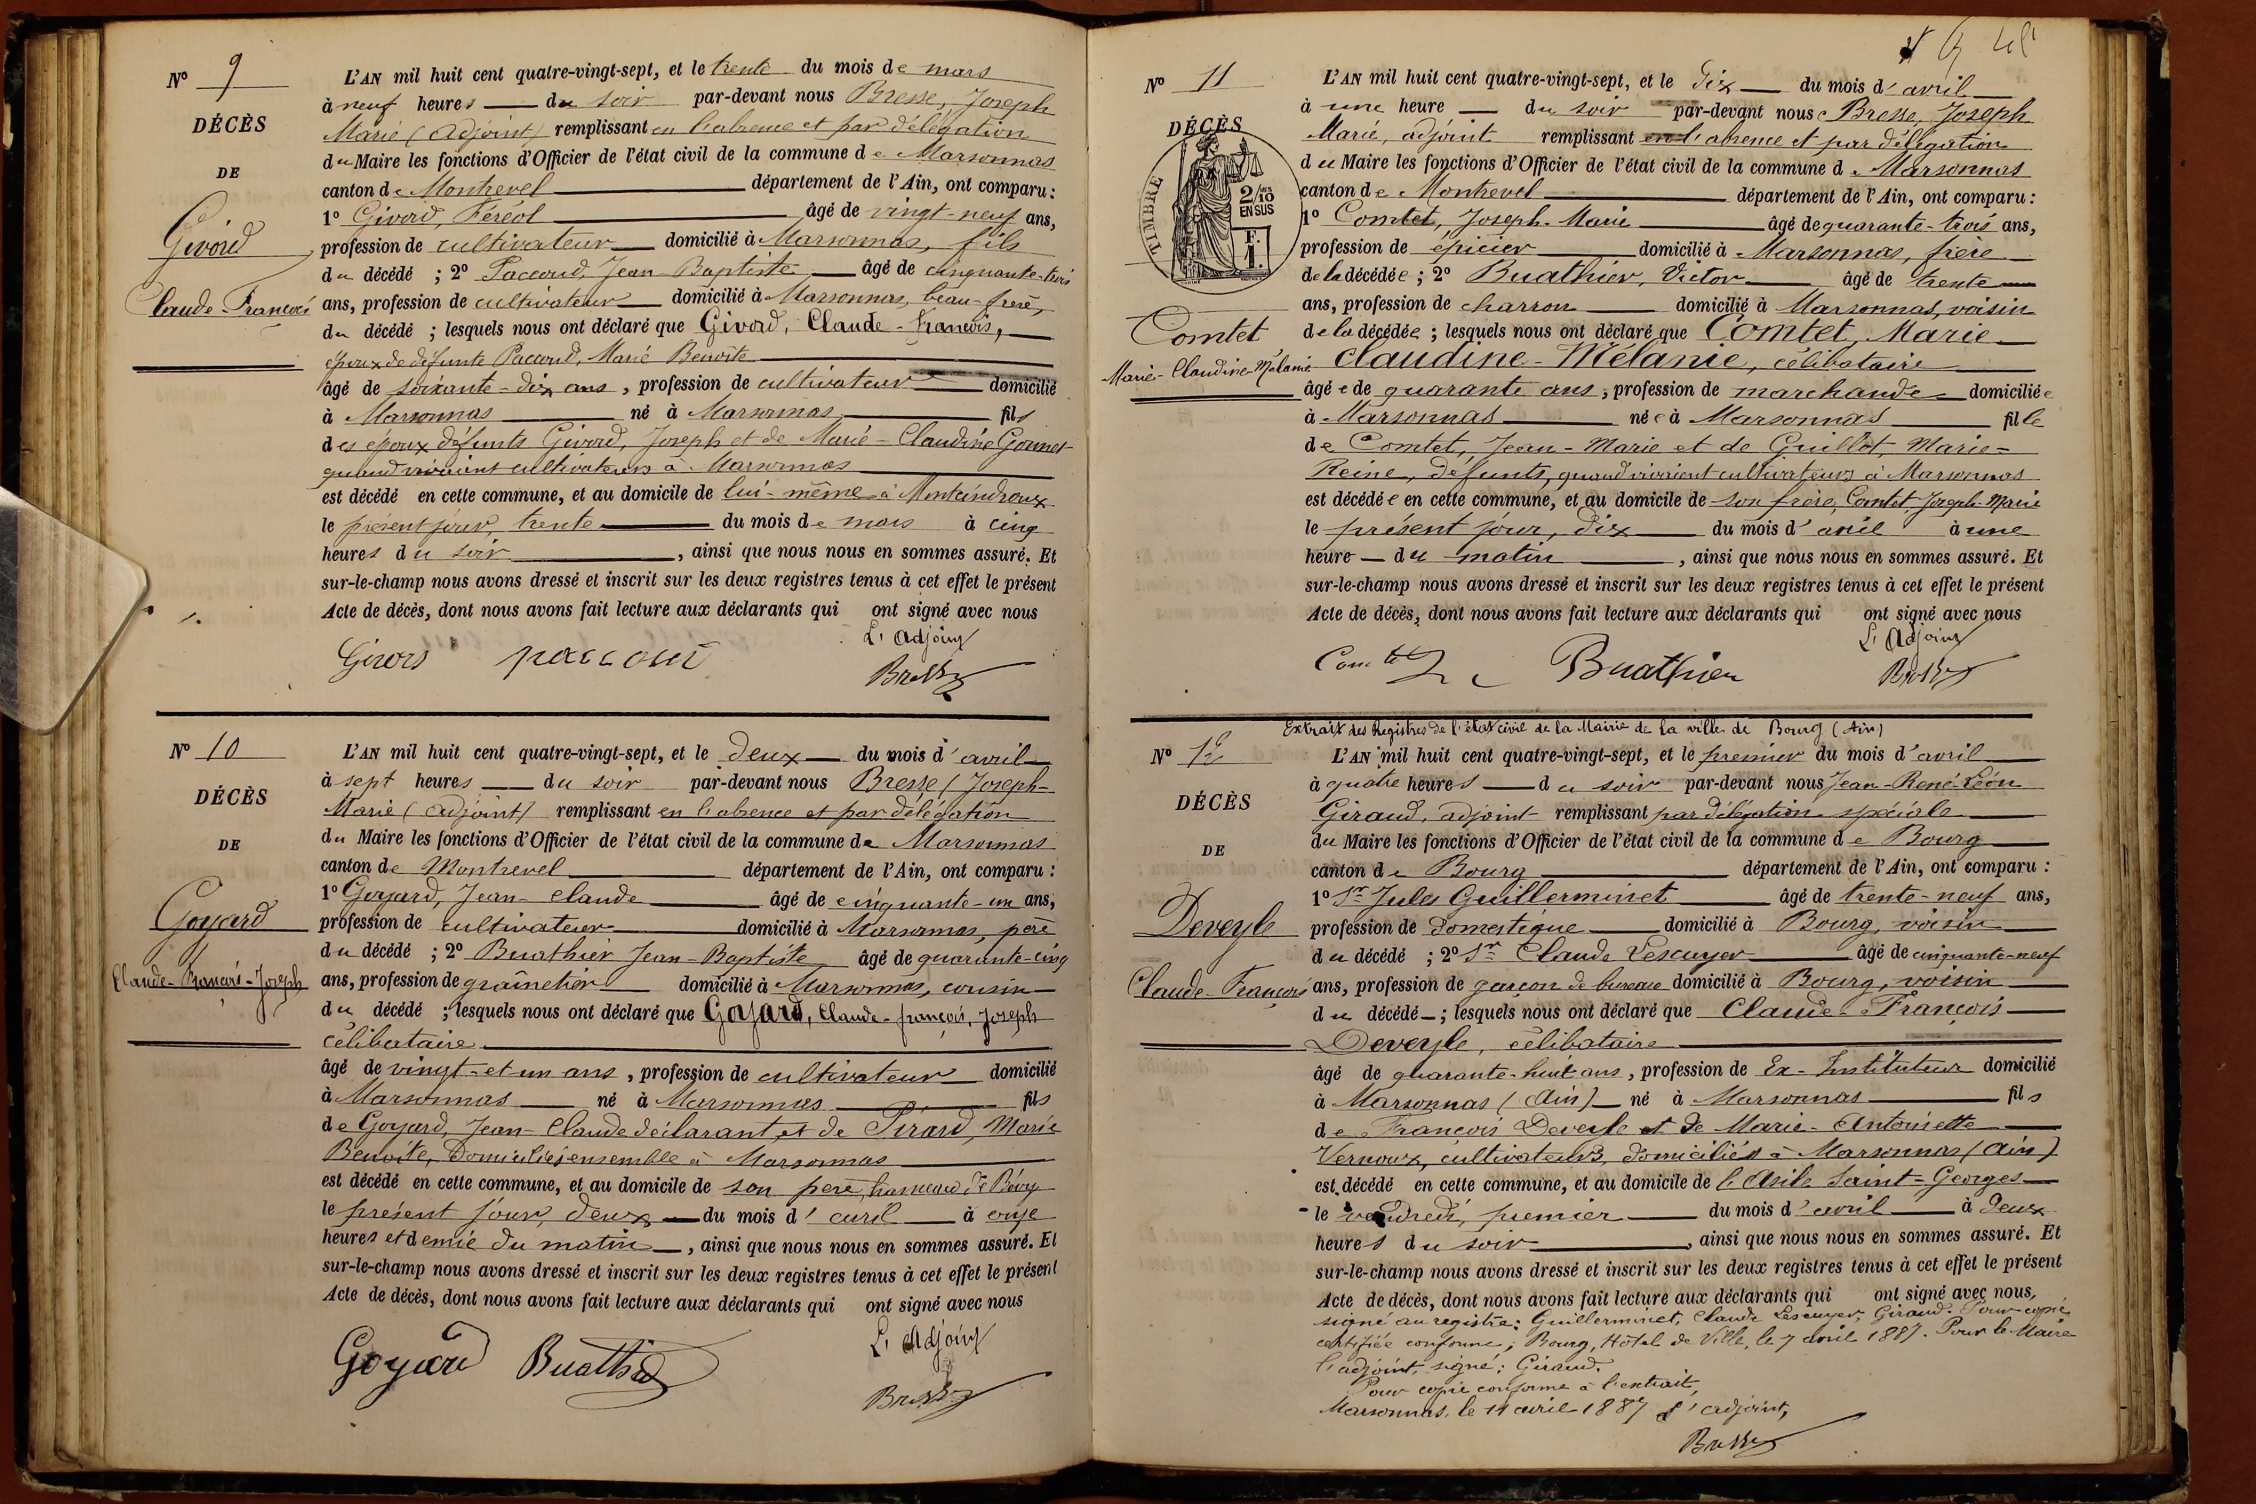 N° 9
DÉCÈS
DE
Givord
Claude-François
L'AN mil huit cent quatre-vingt-sept, et le trente du mois de mars
à neuf heures du soir par-devant nous Bresse, Joseph
Marie (adjoint) remplissant en l'absence et par délégation
du Maire les fonctions d'Officier de l'état civil de la commune de Marsonnas
canton de Montrevel département de l'Ain, ont comparu :
1° Givord, Féréol âgé de vingt-neuf ans,
profession de cultivateur domicilié à Marsonnas, fils
du décédé ; 2° Paccoud, Jean-Baptiste âgé de cinquante-trois
ans, profession de cultivateur domicilié à Marsonnas, beau-frère,
du décédé ; lesquels nous ont déclaré que Givord, Claude-François,
époux de défunte Paccoud, Marie Benoîte
âgé de soixante-dix ans, profession de cultivateur domicilié
à Marsonnas né à Marsonnas fils
des époux défunts Givord, Joseph et de Marie-Claudine Gonnet
quand vivaient cultivateurs à Marsonnas
est décédé en cette commune, et au domicile de lui-même à Montcindroux
le présent jour, trente du mois de mars à cinq
heures du soir, ainsi que nous nous en sommes assuré. Et
sur-le-champ nous avons dressé et inscrit sur les deux registres tenus à cet effet le présent
Acte de décès, dont nous avons fait lecture aux déclarants qui ont signé avec nous
L'Adjoint
Givord paccoud Bresse
N° 10
DÉCÈS
DE
Goyard
Claude-François-Joseph
L'AN mil huit cent quatre-vingt-sept, et le deux du mois d'avril
à sept heures du soir par-devant nous Bresse (Joseph-
Marie (adjoint) remplissant en l'absence et par délégation
du Maire les fonctions d'Officier de l'état civil de la commune de Marsonnas
canton de Montrevel département de l'Ain, ont comparu :
1° Goyard, Jean-Claude âgé de cinquante-un ans,
profession de cultivateur domicilié à Marsonnas, père
du décédé ; 2° Buathier Jean-Baptiste âgé de quarante-cinq
ans, profession de grainetier domicilié à Marsonnas, cousin
du décédé ; lesquels nous ont déclaré que Goyard, Claude-françois, Joseph
célibataire
âgé de vingt-et-un ans, profession de cultivateur domicilié
à Marsonnas né à Marsonnas fils
de Goyard, Jean-Claude déclarant et de Pirard, Marie
Benoîte, domiciliés ensemble à Marsonnas
est décédé en cette commune, et au domicile de son père, hameau de Bévy
le présent jour, deux du mois d'avril à onze
heures et demie du matin, ainsi que nous nous en sommes assuré. Et
sur-le-champ nous avons dressé et inscrit sur les deux registres tenus à cet effet le présent
Acte de décès, dont nous avons fait lecture aux déclarants qui ont signé avec nous
L'Adjoint
Goyard Buathier Bresse
N° 11
DÉCÈS
TIMBRE
2/10 EN SUS
Comtet
Marie-Claudine-Mélanie
L'AN mil huit cent quatre-vingt-sept, et le dix du mois d'avril
à une heure du soir par-devant nous Bresse, Joseph
Marie, adjoint remplissant en l'absence et par délégation
du Maire les fonctions d'Officier de l'état civil de la commune de Marsonnas
canton de Montrevel département de l'Ain, ont comparu :
1° Comtet, Joseph-Marie âgé de quarante-trois ans,
profession de épicier domicilié à Marsonnas, frère
de la décédée ; 2° Buathier, Victor âgé de trente
ans, profession de charron domicilié à Marsonnas, voisin
de la décédée ; lesquels nous ont déclaré que Comtet, Marie
Claudine-Mélanie, célibataire
âgée de quarante ans, profession de marchande domiciliée
à Marsonnas née à Marsonnas fille
de Comtet, Jean-Marie et de Guillot, Marie-
Reine, défunts, quand vivaient cultivateurs à Marsonnas
est décédée en cette commune, et au domicile de son frère, Comtet, Joseph-Marie
le présent jour, dix du mois d'avril à une
heure du matin, ainsi que nous nous en sommes assuré. Et
sur-le-champ nous avons dressé et inscrit sur les deux registres tenus à cet effet le présent
Acte de décès, dont nous avons fait lecture aux déclarants qui ont signé avec nous
L'Adjoint
Comtet Buathier Bresse
Extrait des Registres de l'état civil de la Mairie de la ville de Bourg (Ain)
N° 12
DÉCÈS
DE
Deveyle
Claude-François
L'AN mil huit cent quatre-vingt-sept, et le premier du mois d'avril
à quatre heures du soir par-devant nous Jean-René-Léon
Giraud, adjoint remplissant par délégation spéciale
du Maire les fonctions d'Officier de l'état civil de la commune de Bourg
canton de Bourg département de l'Ain, ont comparu :
1° Sr Jules Guillerminet âgé de trente-neuf ans,
profession de domestique domicilié à Bourg, voisin
du décédé ; 2° Sr Claude Lescuyer âgé de cinquante-neuf
ans, profession de garçon de bureau domicilié à Bourg, voisin
du décédé ; lesquels nous ont déclaré que Claude-François
Deveyle, célibataire
âgé de quarante-huit ans, profession de Ex-Instituteur domicilié
à Marsonnas (Ain) né à Marsonnas fils
de François Deveyle et de Marie-Antoinette
Vernoux, cultivateurs, domiciliés à Marsonnas (Ain)
est décédé en cette commune, et au domicile de l'Asile Saint-Georges
le vendredi, premier du mois d'avril à deux
heures du soir, ainsi que nous nous en sommes assuré. Et
sur-le-champ nous avons dressé et inscrit sur les deux registres tenus à cet effet le présent
Acte de décès, dont nous avons fait lecture aux déclarants qui ont signé avec nous,
signé au registre : Guillerminet, Claude Lescuyer, Giraud. Pour copie
certifiée conforme ; Bourg, Hôtel de Ville, le 7 avril 1887. Pour le Maire
l'adjoint, signé : Giraud.
Pour copie conforme à l'extrait,
Marsonnas, le 11 avril 1887 L'adjoint,
Bresse